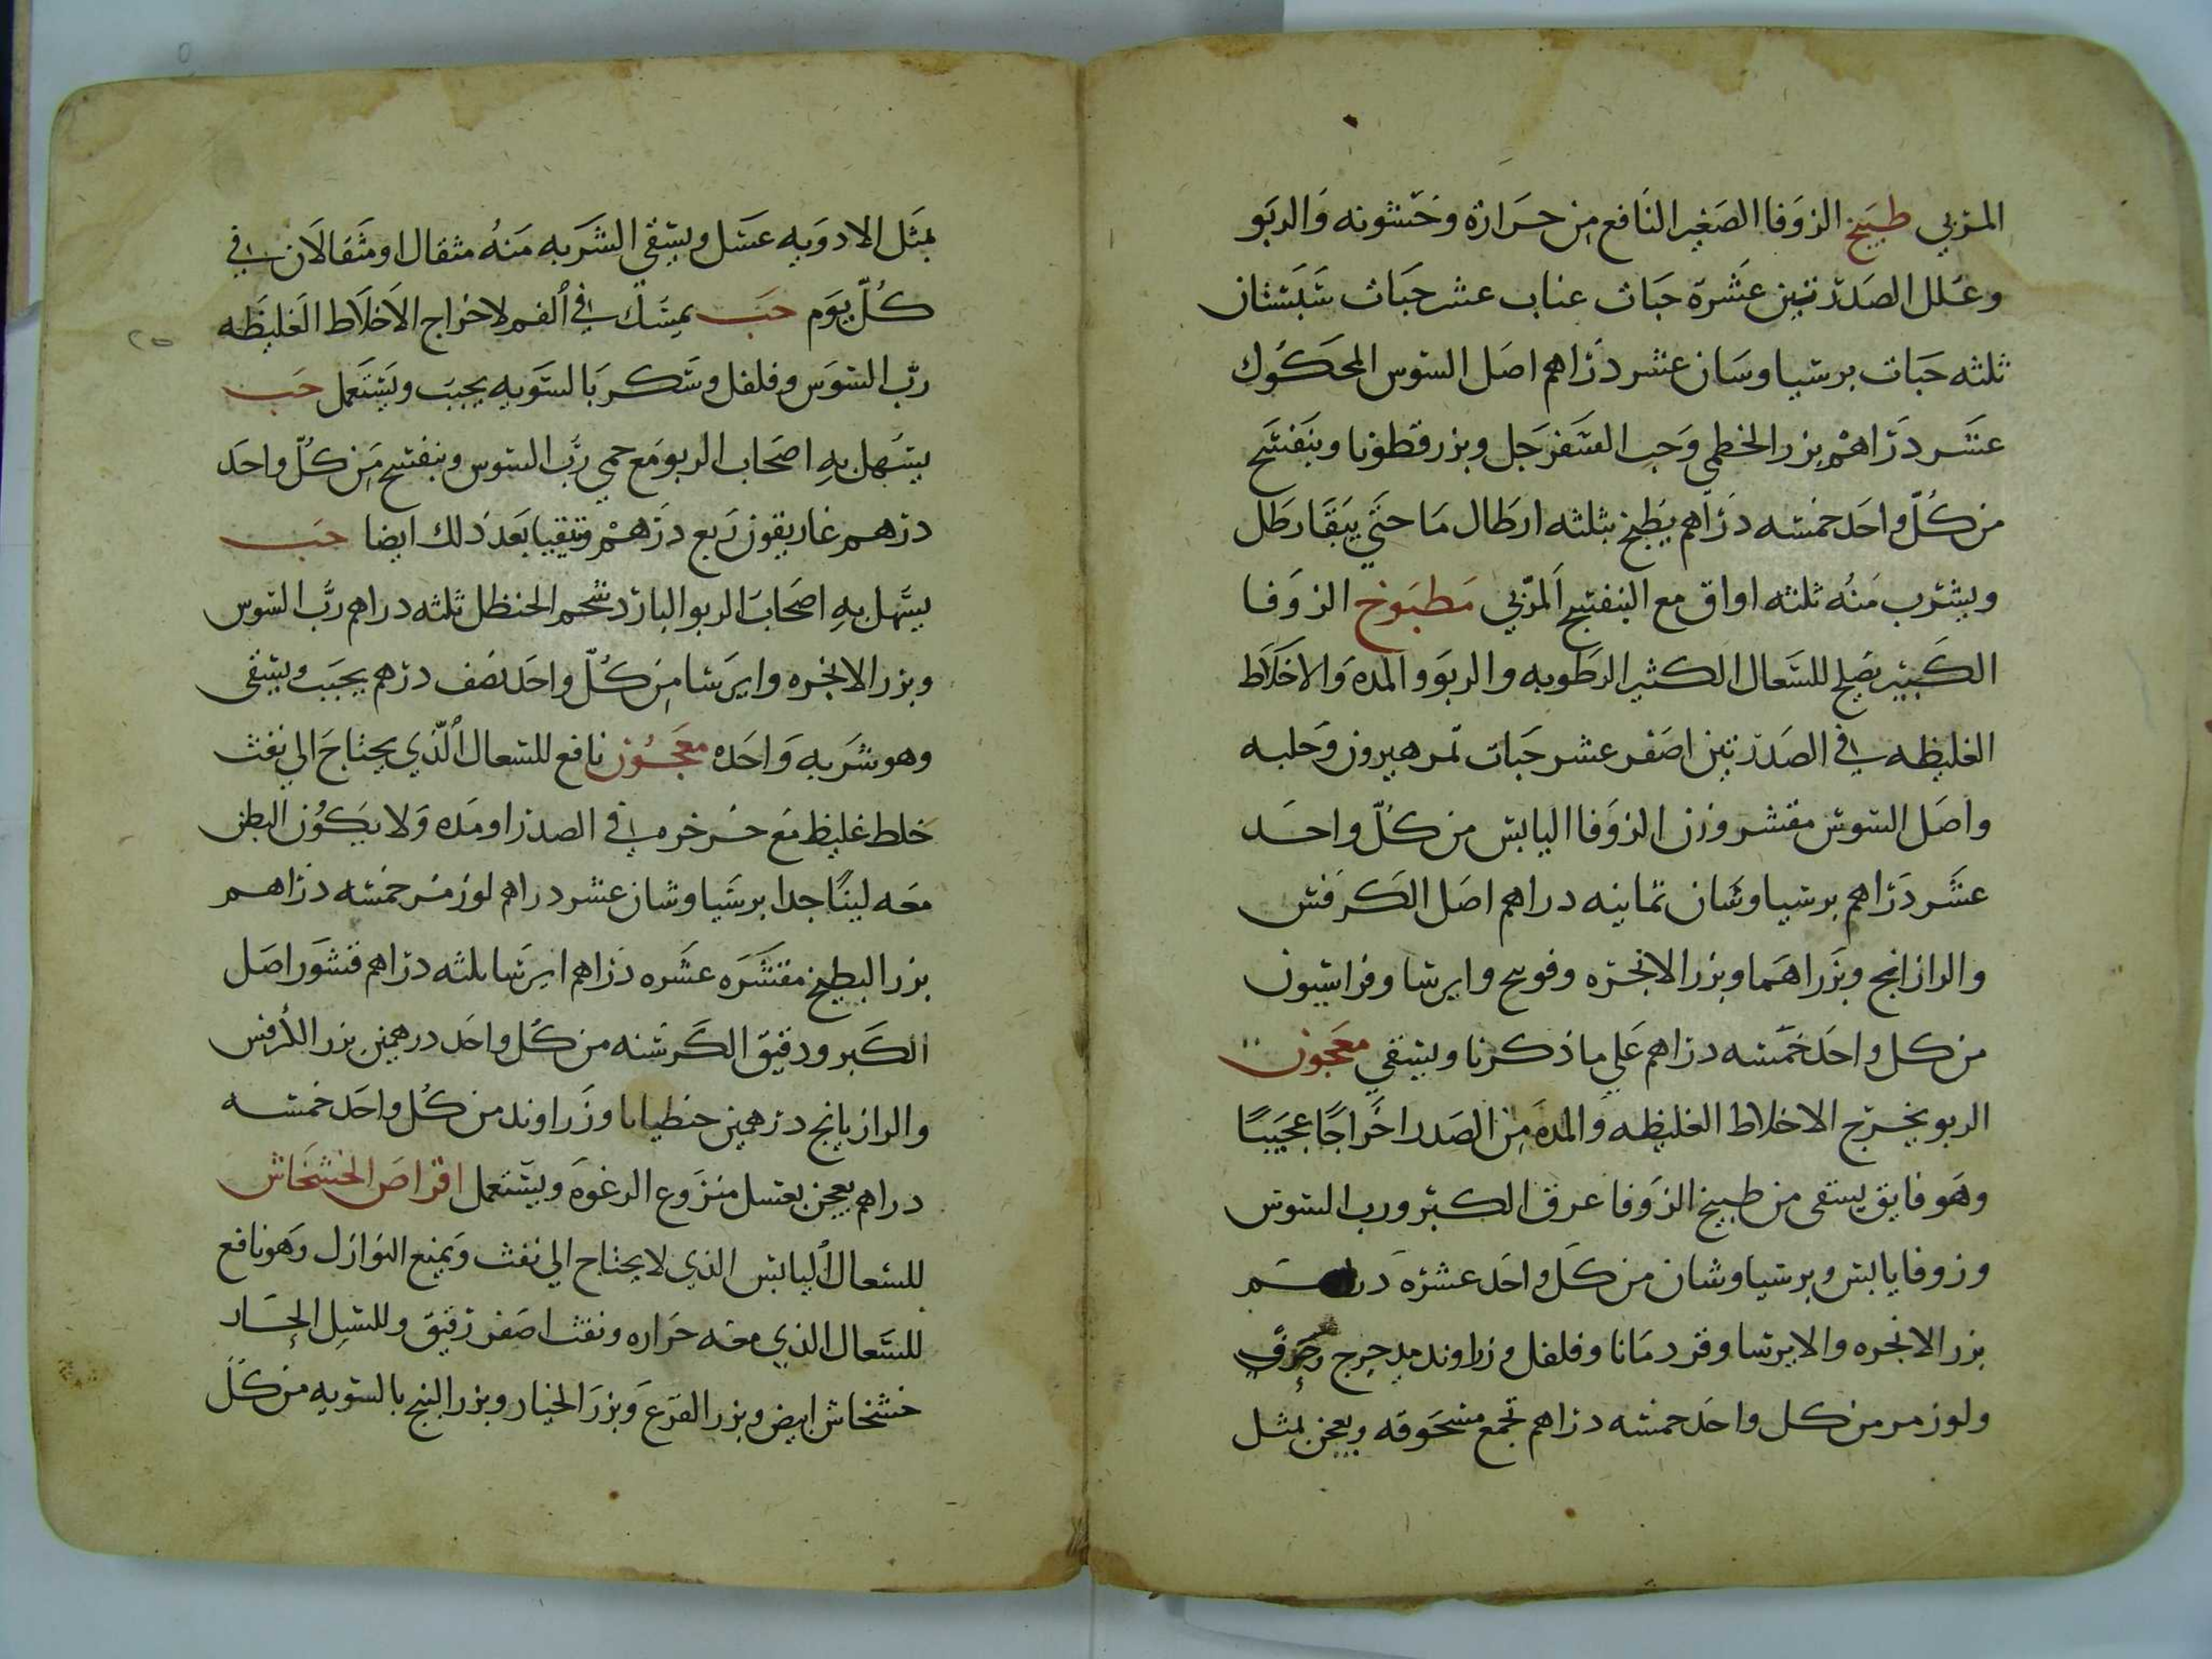 المربي طبيخ الزوفا الصغير النافع من حرارة وخشونه والربو
وعلل الصدر تين عشرة حبات عناب عشر حبات سبستان
ثلثه حبات برسياوسان عشر دراهم اصل السوس المحكوك
عشر دراهم بزر الخطمي وحب السفرجل وبزر قطونا وبنفسج
من كل واحد خمسه دراهم يطبخ بثلثه ارطال ما حتي يبقا رطل
ويشرب منه ثلثه اواق مع البنفسج المربي مطبوخ الزوفا
الكبير يصلح للسعال الكثير الرطوبه والربو والمده والاخلاط
الغليظه في الصدر تين اصفر عشر حبات تمر هيرون وحلبه
واصل السوس مقشر وزن الزوفا اليابس من كل واحد
عشر دراهم برسياوشان ثمانيه دراهم اصل الكرفس
والرازانج وبزراهما وبزر الانجره وفويح وايرسا وفراسيون
من كل واحد خمسه دراهم علي ما ذكرنا ويسقي معجون
الربو يخرج الاخلاط الغليظه والمده من الصدر اخراجا عجيبا
وهو فايق يسقى من طبيخ الزوفا عرق الكبر ورب السوس
وزوفا يابس وبرسياوشان من كل واحد عشره دراهم
بزر الانجره والايرسا وقردمانا وفلفل وزراوند مدحرج وحرف
ولوز مر من كل واحد خمسه دراهم تجمع مسحوقه ويعجن بمثل
بمثل الادويه عسل ويسقي الشربه منه مثقال او مثقالان في
كل يوم حب يمسك في الفم لاخراج الاخلاط الغليظه
رب السوس وفلفل وسكر بالسويه يحبب ويستعمل حب
يسهل به اصحاب الربو مع حمي رب السوس وبنفسج من كل واحد
درهم غاريقون ربع درهم وتقيا بعد ذلك ايضا حب
يسهل به اصحاب الربو البارد شحم الحنظل ثلثه دراهم رب السوس
وبزر الانجره وايرسا من كل واحد نصف درهم يحبب ويسقى
وهو شربه واحده معجون نافع للسعال الذي يحتاج الي نفث
خلط غليظ مع خرخره في الصدر او مده ولا يكون البطن
معه لينا جدا برسياوشان عشر دراهم لوز مر خمسه دراهم
بزر البطيخ مقشره عشره دراهم ايرسا ثلثه دراهم قشور اصل
الكبر ودقيق الكرسنه من كل واحد درهمين بزر الكرفس
والرازيانج درهمين جنطيانا وزراوند من كل واحد خمسه
دراهم يعجن بعسل منزوع الرغوه ويستعمل اقراص الخشخاش
للسعال اليابس الذي لا يحتاج الي نفث ويمنع النوازل وهو نافع
للسعال الذي معه حراره ونفث اصفر رقيق وللسل الحار
خشخاش ابيض وبزر القرع وبزر الخيار وبزر البنج بالسويه من كل